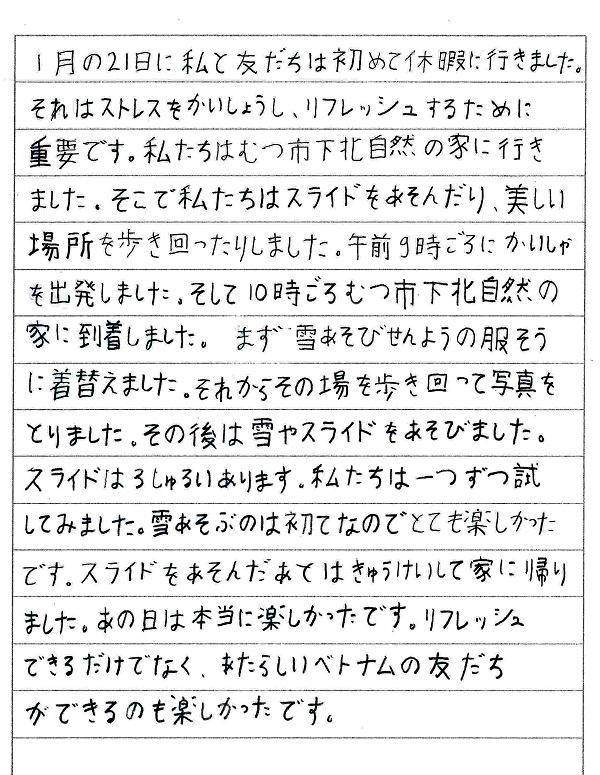 1月の21日に私と友だちは初めて休暇に行きました。
それはストレスをかいしょうし、リフレッシュするために
重要です。私たちはむつ市下北自然の家に行き
ました。そこで私たちはスライドをあそんだり、美しい
場所を歩き回ったりしました。午前9時ごろにかいしゃ
を出発しました。そして10時ごろむつ市下北自然の
家に到着しました。 まず 雪あそびせんようの服そう
に着替えました。それからその場を歩き回って写真を
とりました。その後は雪やスライドをあそびました。
スライドは3しゅるいあります。私たちは一つずつ試
してみました。雪あそぶのは初てなのでとても楽しかった
です。スライドをあそんだあとはきゅうけいして家に帰り
ました。あの日は本当に楽しかったです。リフレッシュ
できるだけでなく、あたらしいベトナムの友だち
ができるのも楽しかったです。